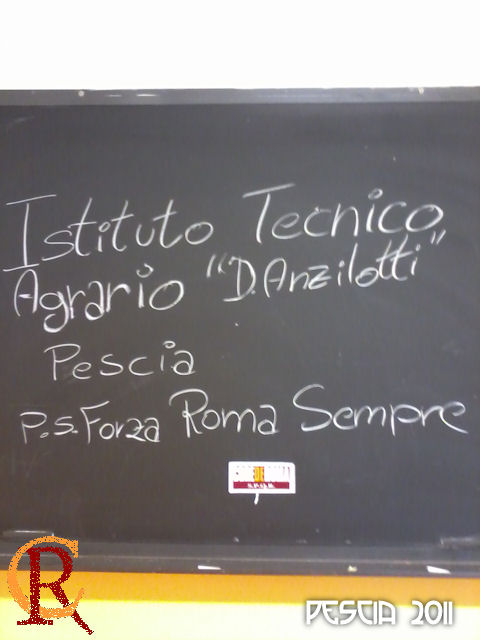 Istituto Tecnico
Agrario "D. Anzilotti"
Pescia
P.S. Forza Roma Sempre
S.P.Q.R.
CR
PESCIA 2011